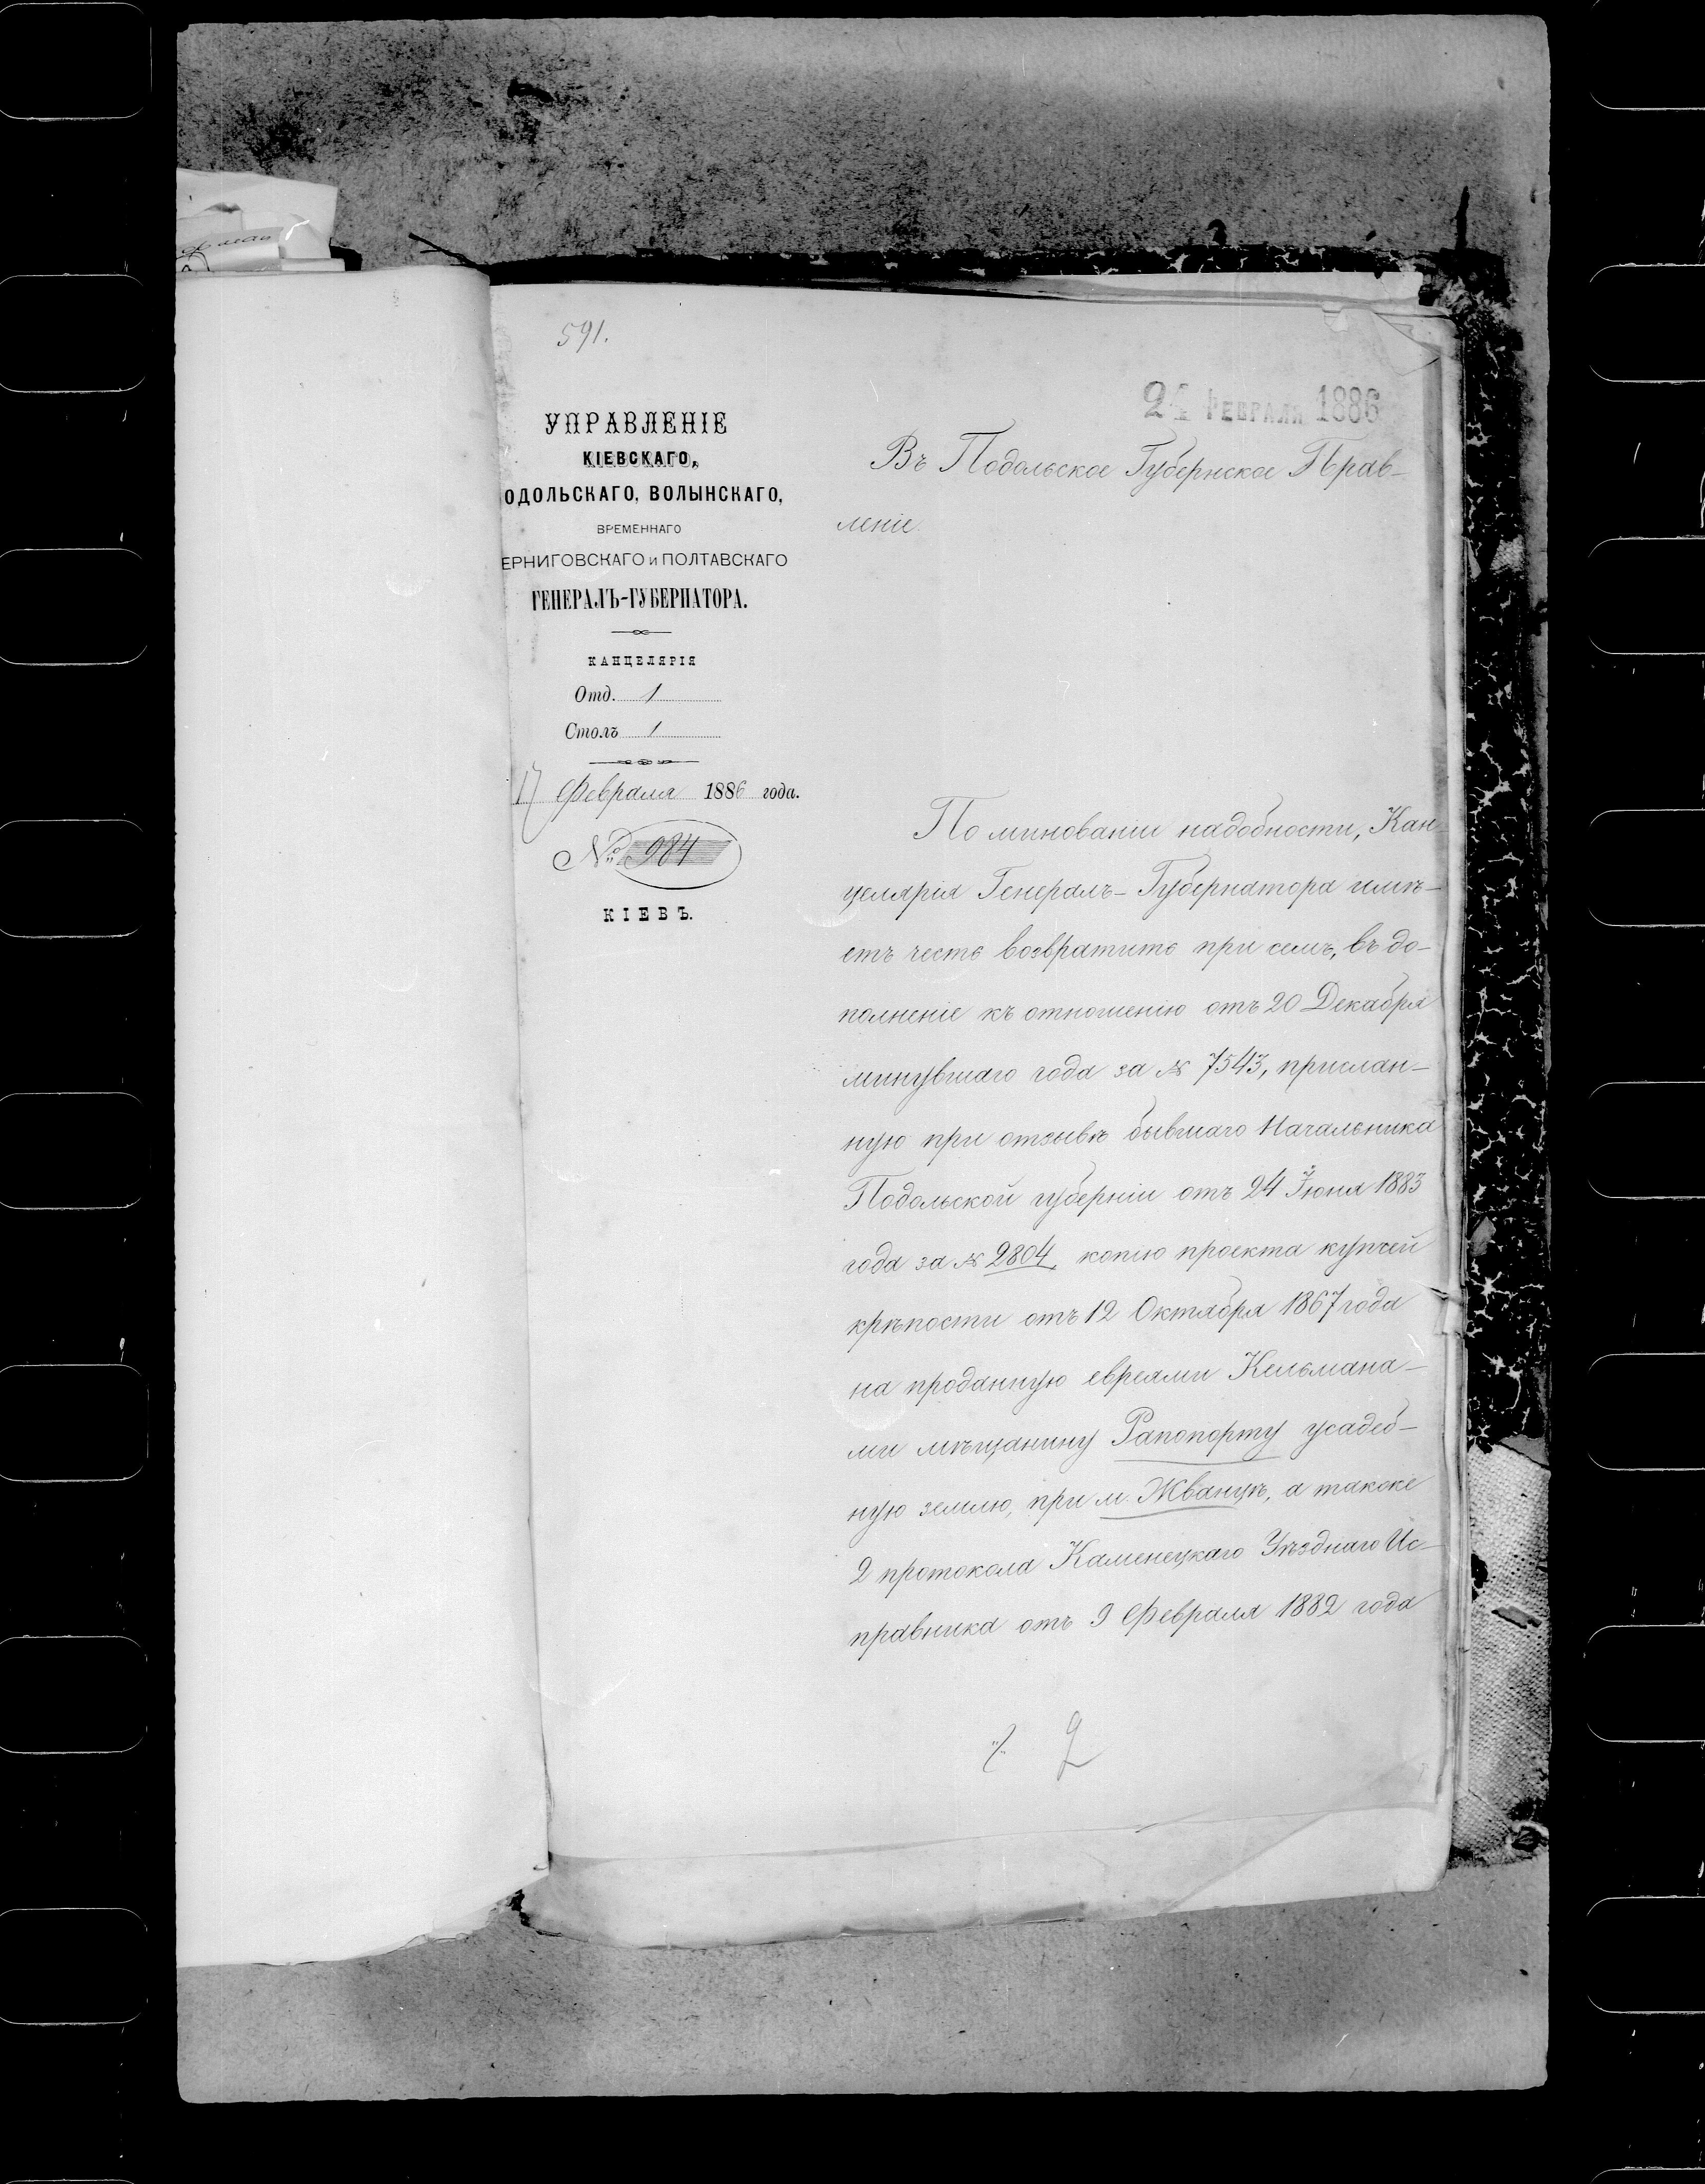 591.
УПРАВЛЕНІЕ
КІЕВСКАГО,
ОДОЛЬСКАГО, ВОЛЫНСКАГО,
ВРЕМЕННАГО
ЕРНИГОВСКАГО и ПОЛТАВСКАГО
ГЕНЕРАЛЪ-ГУБЕРНАТОРА.
КАНЦЕЛЯРІЯ
Отд. 1
Столъ 1
17 Февраля 1886 года.
№ 984
КІЕВЪ.
ФЕВРАЛЯ 1886
Въ Подольское Губернское Прав-
леніе
По минованіи надобности, Кан-
целярія Генералъ-Губернатора имѣ-
етъ честь возвратить при семъ, въ до-
полненіе къ отношенію отъ 20 Декабря
минувшаго года за № 7543, прислан-
ную при отзывѣ бывшаго Начальника
Подольской губерніи отъ 24 Іюня 1883
года за № 2804, копію проекта купчей
крѣпости отъ 12 Октября 1867 года
на проданную евреями Кельмана-
ми мѣщанину Рапопорту усадеб-
ную землю, при м. Жванцѣ, а также
2 протокола Каменецкаго Уѣзднаго Ис-
правника отъ 9 Февраля 1882 года
2